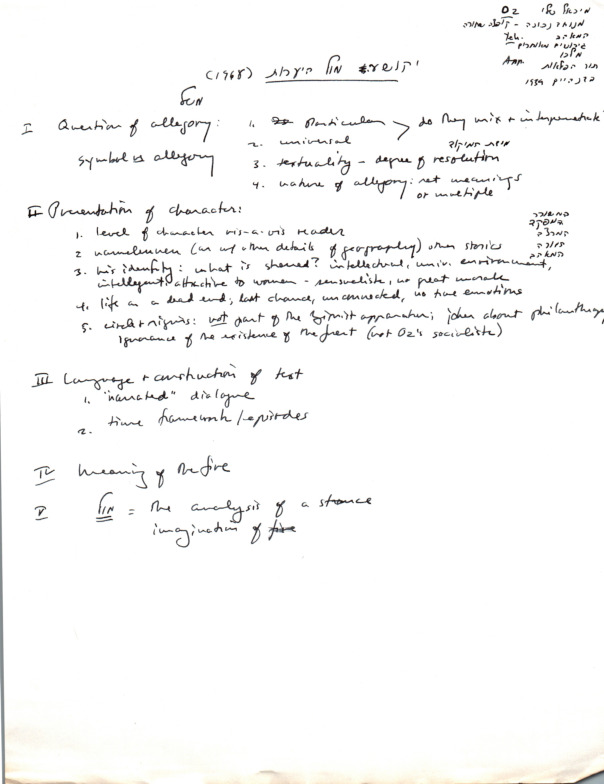 Oz מיכאל שלי
מנוחה נכונה - קופסה שחורה
Yeh. המאהב
גירושים מאוחרים
מולכו
App. תור הפלאות
בדנהיים 1939
יהושע מול היערות (1968)
משל
I Question of allegory: 1. particular > do they mix + interpenetrate
2. universal
symbol vs allegory 3. textuality - degree of resolution
4. nature of allegory: set meanings
or multiple
II Presentation of character:
1. level of character vis-a-vis reader
2 namelessness (as w/ other details of geography) other stories
המפקד
המרצה
המורה
המאהב
3. his identity: what is shared? intellectual, univ. environment,
intelligent, attractive to women - sensualist, no great morale
4. life as a dead end; last chance, unconnected, no true emotions
5. circle + signis: not part of the Zionist apparatus; jokes about philanthropy
ignorance of the existence of the forest (not Oz's socialists)
III Language + construction of text
1. "narrated" dialogue
2. time framework / episodes
IV Meaning of the fire
V מול = the analysis of a stance
imagination of fire